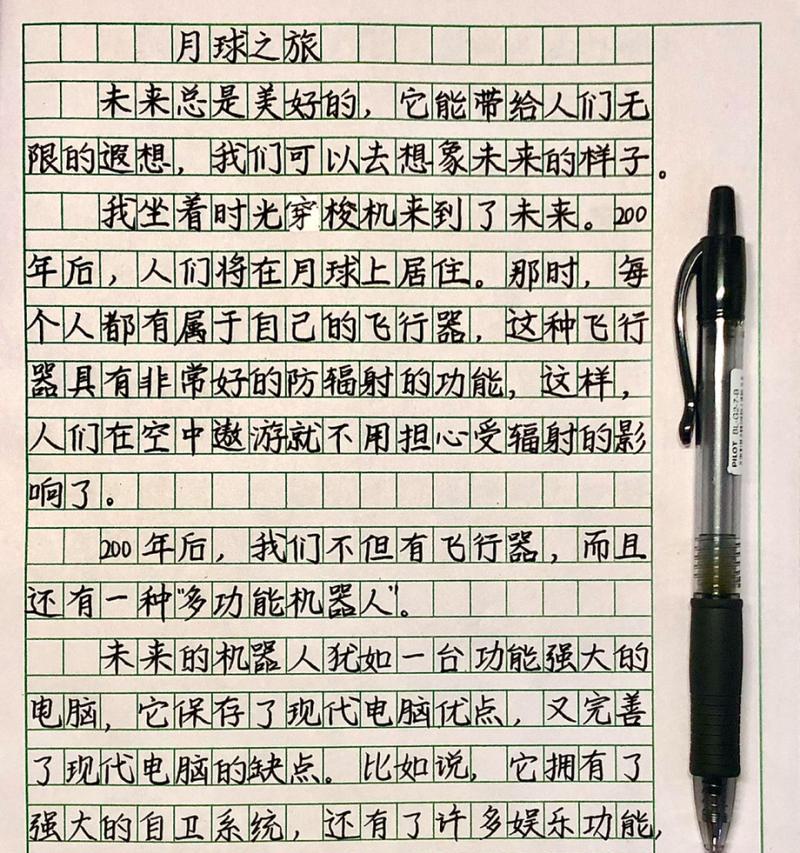 月球之旅
未来总是美好的，它能带给人们无
限的遐想，我们可以去想象未来的样子。
我坐着时光穿梭机来到了未来。200
年后，人们将在月球上居住。那时，每
个人都有属于自己的飞行器，这种飞行
器具有非常好的防辐射的功能，这样，
人们在空中遨游就不用担心受辐射的影
响了。
200年后，我们不但有飞行器，而且
还有一种“多功能机器人”。
未来的机器人犹如一台功能强大的
电脑，它保存了现代电脑优点，又完善
了现代电脑的缺点。比如说，它拥有了
强大的自卫系统，还有了许多娱乐功能，
PILOT BL-G2-7-B